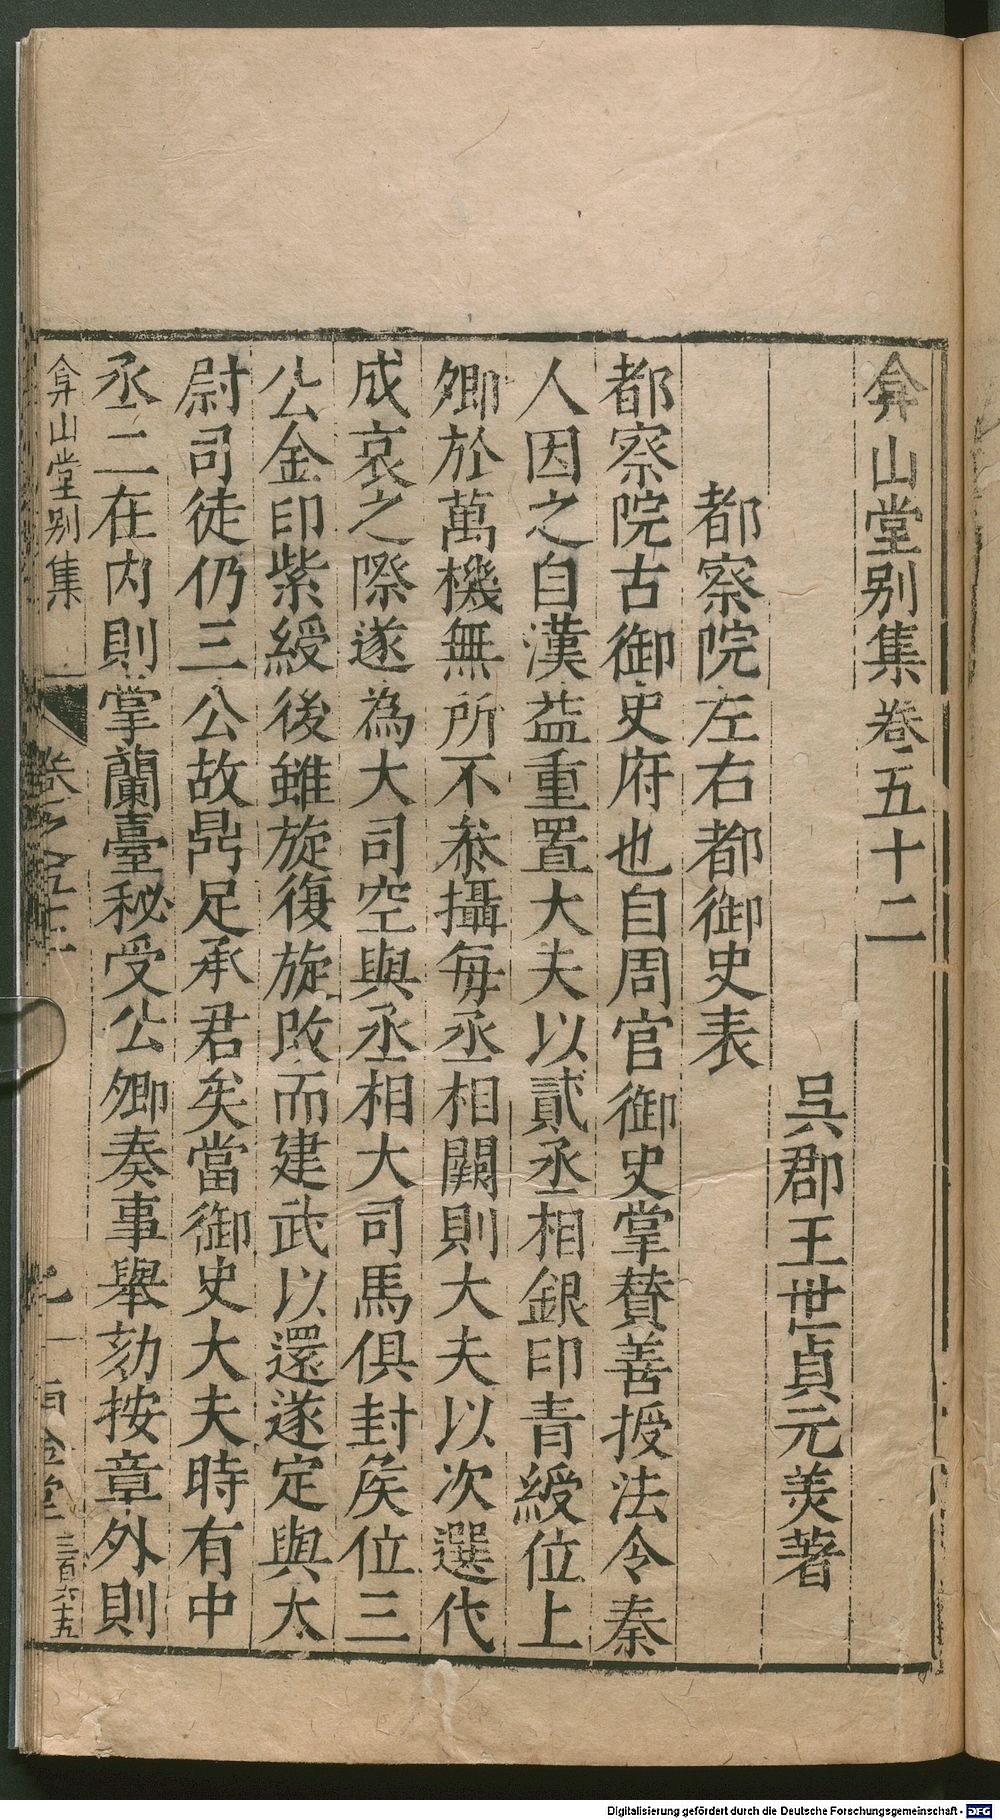 弇山堂别集卷五十二
吳郡王世貞元美著
都察院左右都御史表
都察院古御史府也自周官御史掌賛善授法令秦
人因之自漢益重置大夫以貳丞相銀印青綬位上
卿於萬機無所不叅攝每丞相闕則大夫以次選代
成哀之際遂為大司空與丞相大司馬俱封矦位三
公金印紫綬後雖旋復旋改而建武以還遂定與太
尉司徒仍三公故鼎足承君矣當御史大夫時有中
丞二在内則掌蘭臺秘受公卿奏事舉劾按章外則
弇山堂别集
卷之五十二
一
雨金堂
三百六十五
Digitalisierung gefördert durch die Deutsche Forschungsgemeinschaft - DFG